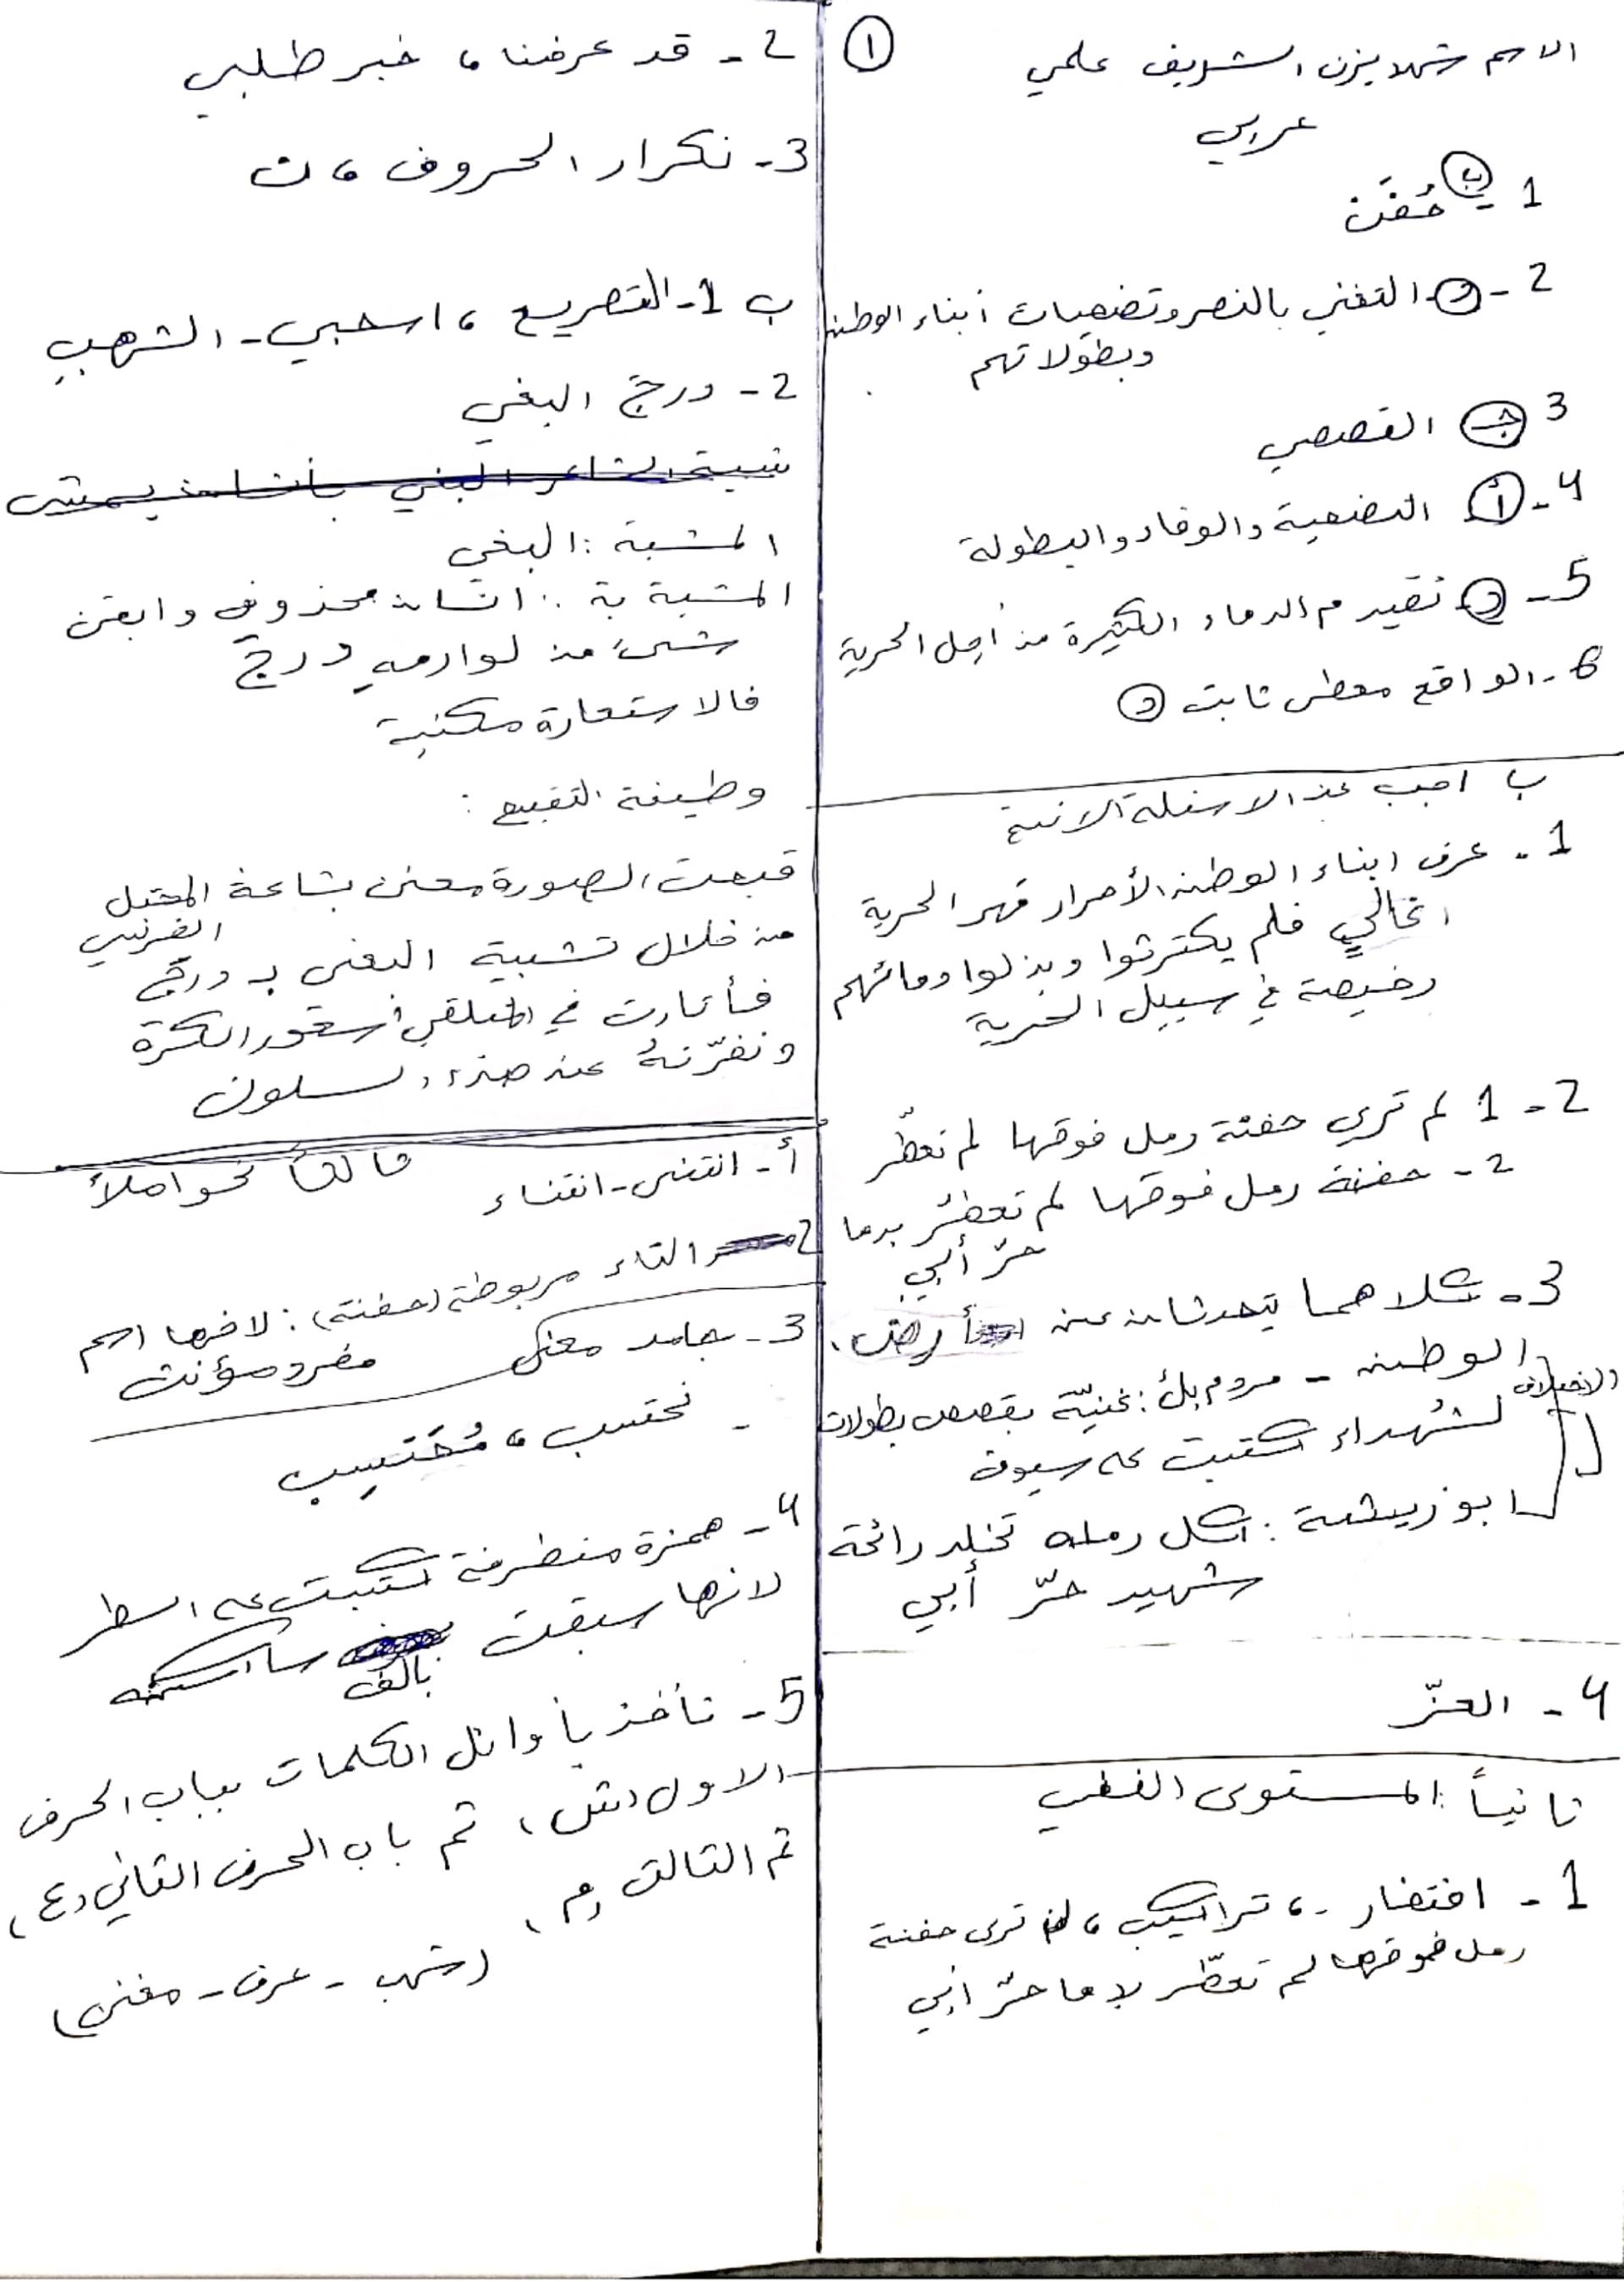 الاسم شهد يزن الشريف علمي
①
عربي
1 - ب حُفَن
2 - د التغني بالنصر وتضحيات أبناء الوطن
وبطولاتهم
3 ج القصصي
4 - أ التضحية والوفاء والبطولة
5 - د تقديم الدماء الكثيرة من أجل الحرية
6 - الواقع معطى ثابت د
ب اجب عن الاسئلة الاتية
1 - عرف ابناء الوطن الأحرار مهر الحرية
الغالي فلم يكترثوا وبذلوا دمائهم
رخيصة في سبيل الحرية
2 - 1 لم تري حفنة رمل فوقها لم تعطّر
2 - حفنة رمل فوقها لم تعطّر بدما
حرّ أبي
3 - كلاهما يتحدثان عن أرض
الوطن - مردم بك: غنيّة بقصص بطولات
الاختلاف
لشهداء كتبت على سيوف
ابو ريشة: كل رملة تخلد رائحة
شهيد حرّ أبي
4 - العزّ
ثانياً: المستوى الفني
1 - افتخار، تراكيب، لا ترى حفنة
رمل فوقها لم تعطّر بدما حرّ أبي
2 - قد عرفنا، خبر طلبي
3 - تكرار الحروف، ن
ب 1 - التصريع، اسحبي - الشهب
2 - درج البغي
المشبة: البغي
المشبة بة: انسان محذوف وابقى
شيئ من لوازمه درج
فالاستعارة مكنية
وظيفة التقبيح:
قبحت الصورة معنى بشاعة المحتل
الفرنسي
من خلال تشبية البغي بـ درج
فأثارت في المتلقي شعور الكرة
ونفّرتهُ عن هذا السلوك
ثالثاً نحو املأ
أ - انتنى - انتناء
2 التاء مربوطة (حفنة): لانها اسم
مفرد مؤنث
3 - جامد معنى
- نحتسب، مُحْتَسِب
4 - همزة متطرفة كتبت على السطر
لانها سبقت بألف ساكنة
5 - نأخذ بأوائل الكلمات بباب الحرف
الاول (ش)، ثم باب الحرف الثاني (ع)،
ثم الثالث (م)
(شهب - عرف - مغنى)